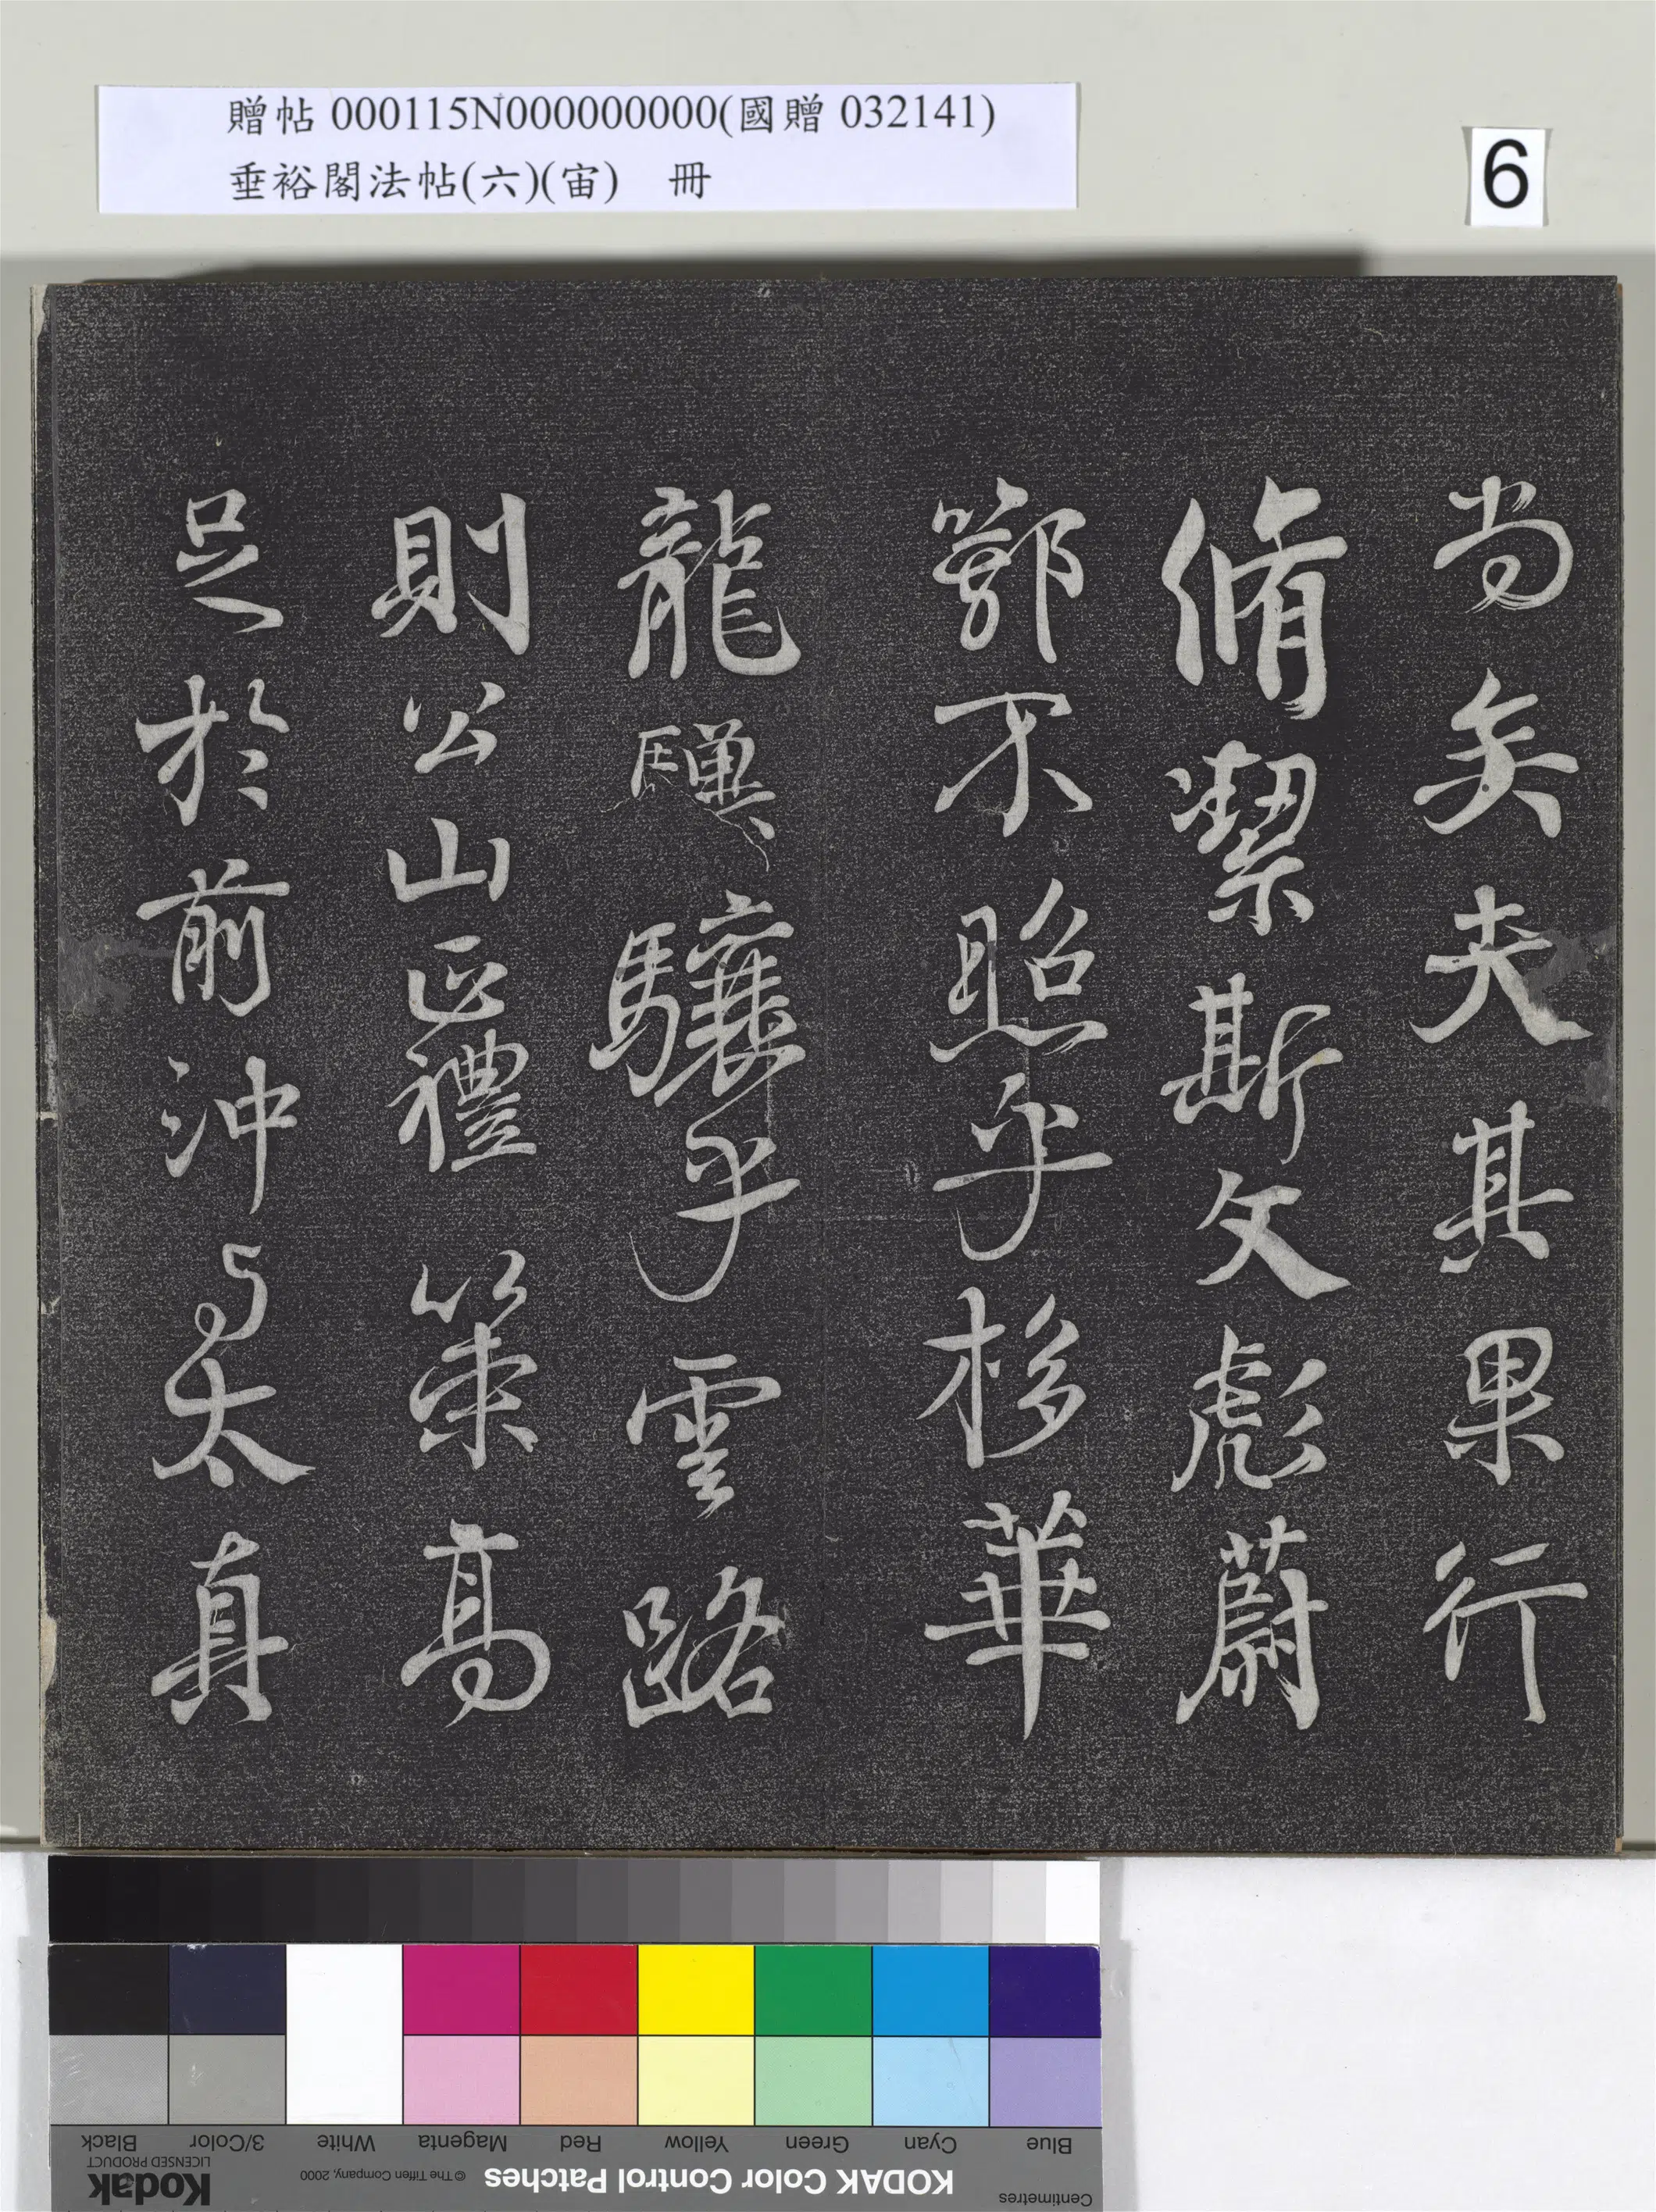 贈帖 000115N000000000(國贈 032141)
垂裕閣法帖(六)(宙) 冊
6
尚矣夫其果行
脩潔斯文彪蔚
鄂不照乎栘華
龍驥驤乎雲路
則公山正禮策高
足於前沖與太真
Blue Cyan Green Yellow Red Magenta White 3/Color Black
Centimetres
KODAK Color Control Patches
© The Tiffen Company, 2000
Kodak
LICENSED PRODUCT